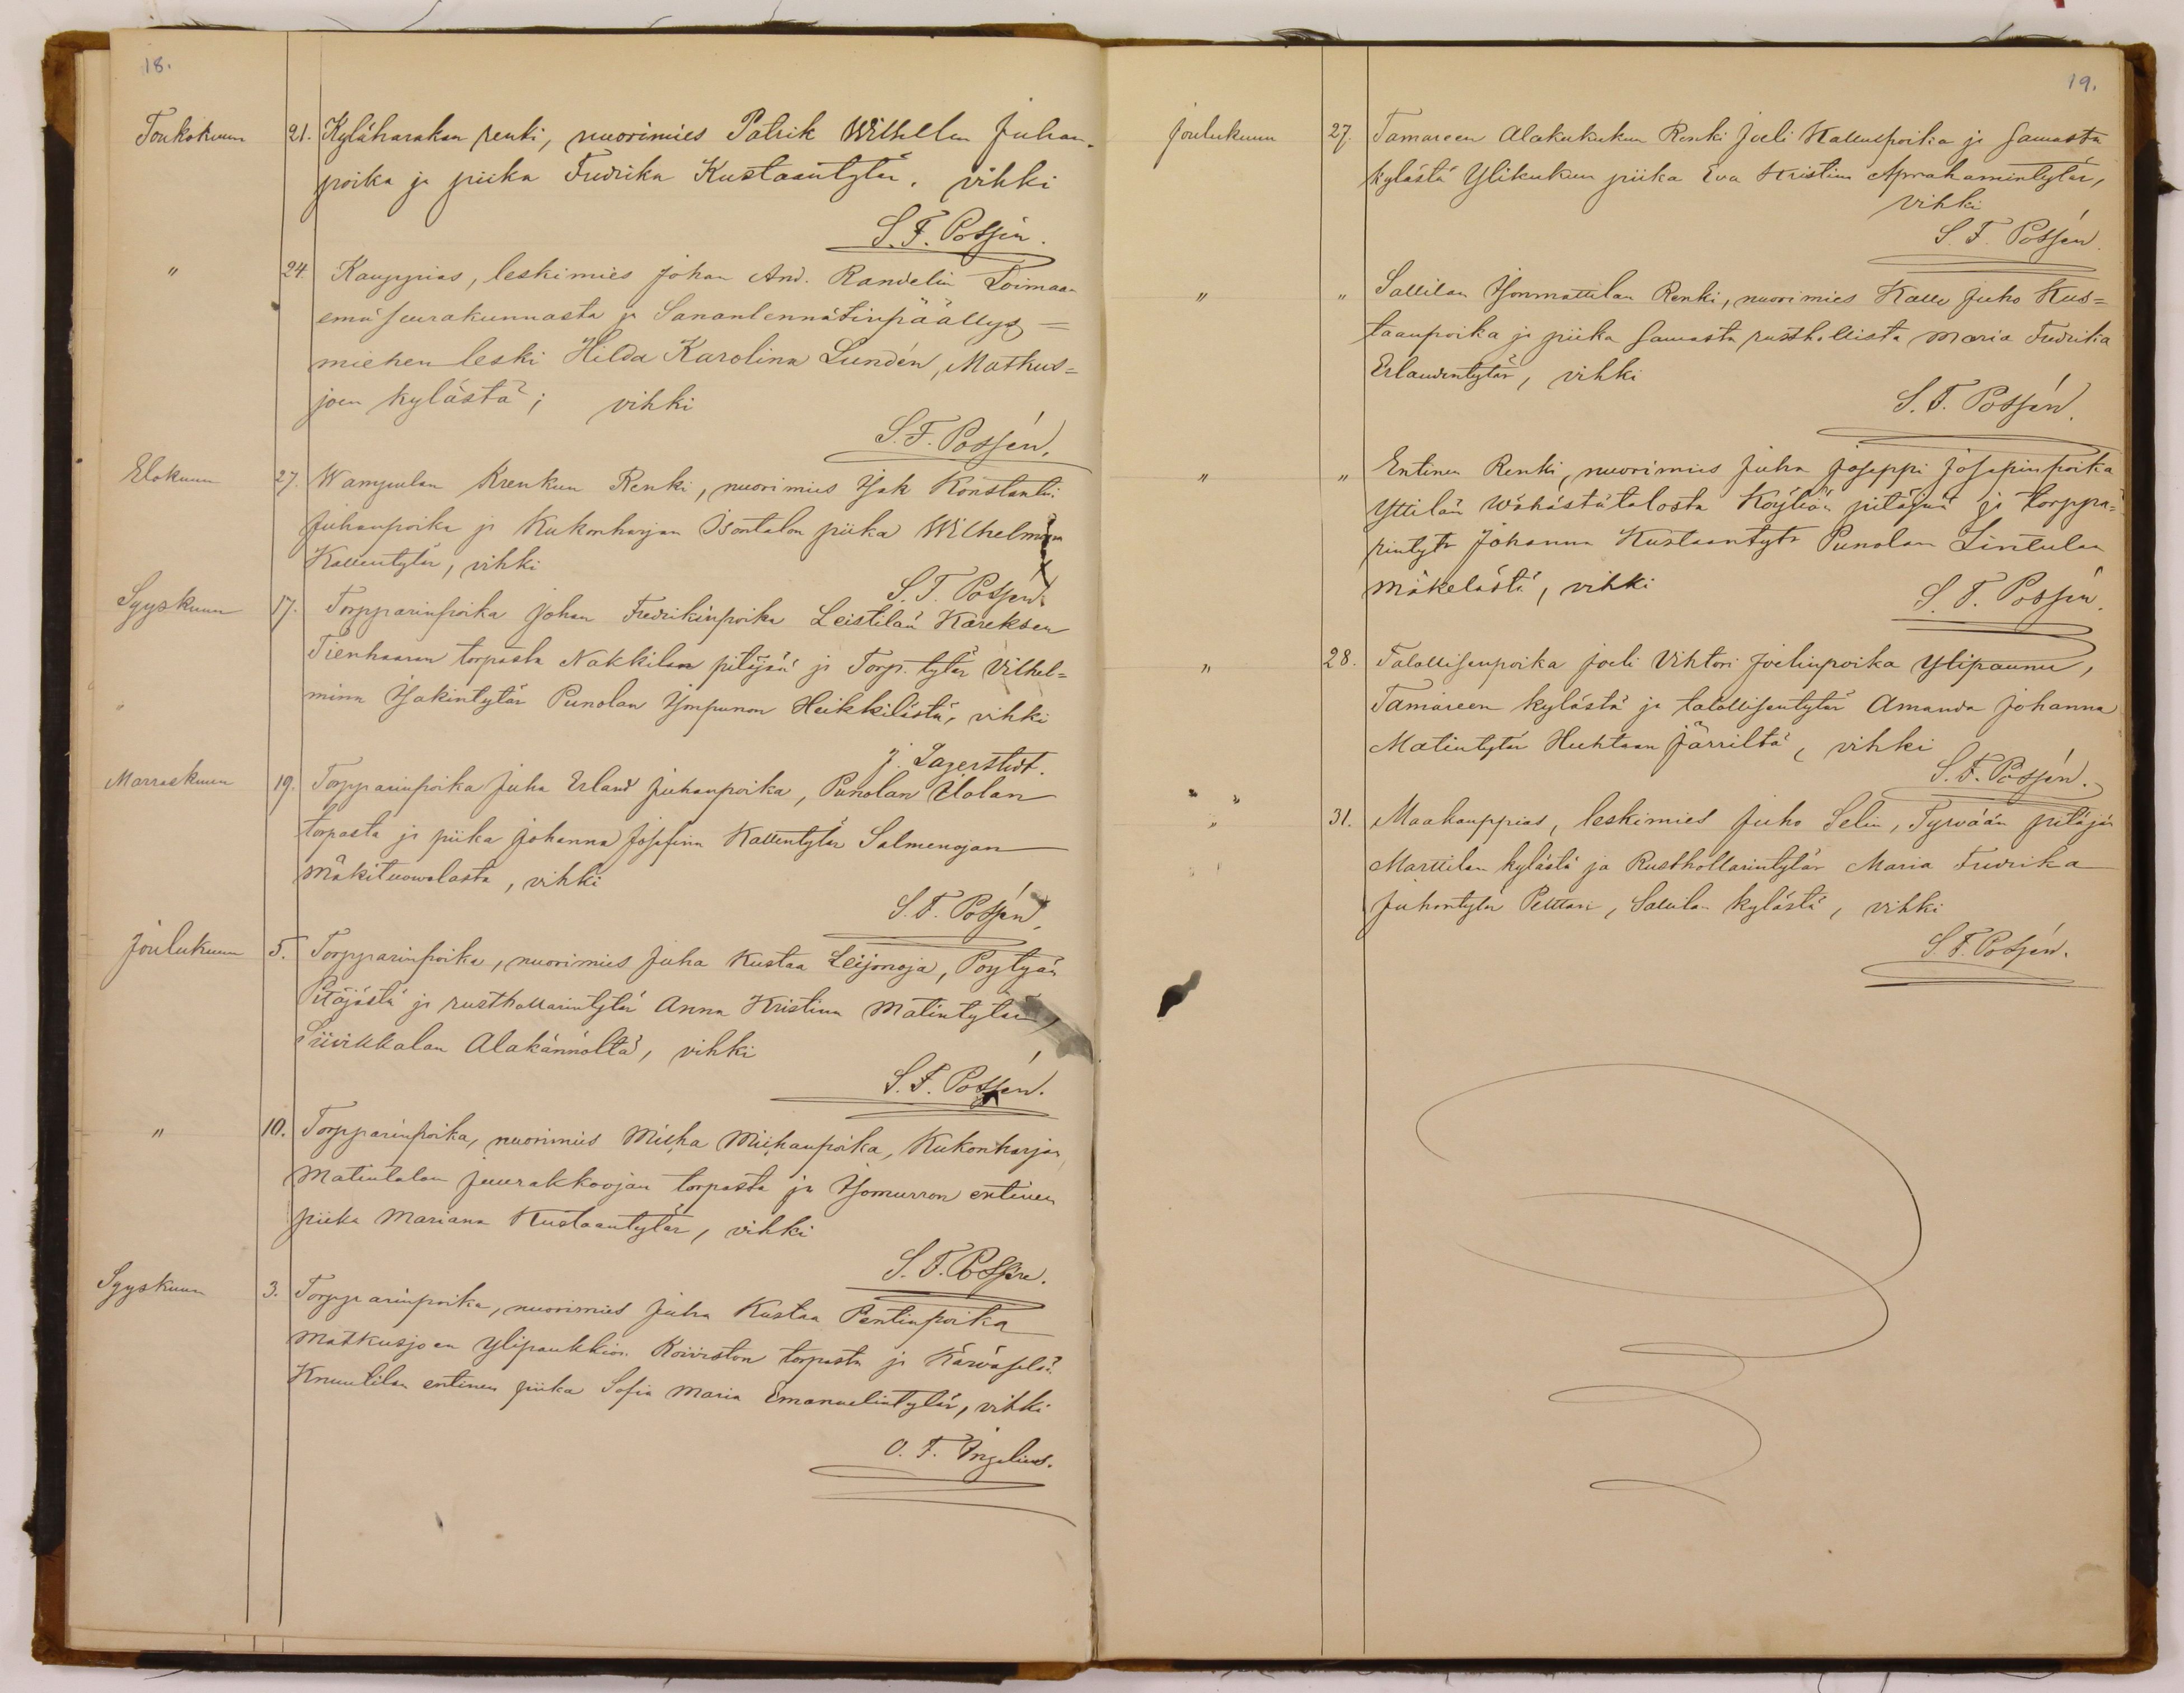 18.
Toukokuun 21. Kyläharakan renki, nuorimies Patrik Wilhelm Juhan-
poika ja piika Fredrika Kustaantytär, vihki
S. F. Possén.
" 24. Kauppias, leskimies Johan And. Randelin Loimaan
emäseurakunnasta ja Sananlennätinpäällys=
miehen leski Hilda Karolina Lundén, Matkus=
joen kylästä; vihki
S. F. Possén.
Elokuun 27. Wampulan Krenkun Renki, nuorimies Isak Konstantin
Juhanpoika ja Kukonharjan Isontalon piika Wilhelmina
Kallentytär, vihki
S. F. Possén.
Syyskuun 17. Torpparinpoika Johan Fredrikinpoika Leistilän Kareksen
Tienhaaran torpasta Nakkilan pitäjää ja Torp. tytär Vilhel=
mina Isakintytär Punolan Heikkilästä, vihki
J. Lagerstedt.
Marraskuun 19. Torpparinpoika Juha Erland Juhanpoika, Punolan Ilolan
torpasta ja piika Johanna Josefina Kallentytär Salmenojan
Mäkituowalasta, vihki
S. F. Possén.
Joulukuun 5. Torpparinpoika, nuorimies Juha Kustaa Leijonoja, Pöytyän
Pitäjästä ja rusthollarintytär Anna Kristina Matintytär,
Siivikkalan Alakännöltä, vihki
S. F. Possén.
" 10. Torpparinpoika, nuorimies Miiha Miihanpoika, Kukonharjan
Matintalon Juurakkoojan torpasta ja entinen
piika Mariana Kustaantytär, vihki
S. F. Possén.
Syyskuun 3. Torpparinpoika, nuorimies Juha Kustaa Pentinpoika
Matkusjoen Ylipaukkion Koiviston torpasta ja
Knuutilan entinen piika Sofia Maria Emanuelintytär, vihki
O. F. Ingelius.
19.
Joulukuun 27. Tamareen Alakukukun Renki Joeli Kallenpoika ja samasta
kylästä Ylikukun piika Eva Kristina Aprahamintytär,
vihki
S. F. Possén.
" " Sallilan Isonmattilan Renki, nuorimies Kalle Juho Kus=
taanpoika ja piika samasta rusthollista Maria Fredrika
Erlandintytär, vihki
S. F. Possén.
" " Entinen Renki, nuorimies Juha Joseppi Josepinpoika
Yttilän Wähästätalosta Köyliön pitäjää ja torppa=
rintytr Johanna Kustaantytr Punolan Lintulan
Mäkelästä, vihki
S. F. Possén.
" 28. Talollisenpoika Joeli Vihtori Joelinpoika Ylipaunu,
Tamareen kylästä ja talollisentytär Amanda Johanna
Matintytär Huhtaan Järriltä, vihki
S. F. Possén.
" 31. Maakauppias, leskimies Juho Selin, Tyrvään pitäjän
Marttilan kylästä ja Rusthollarintytär Maria Fredrika
Juhontytär Pelttari, Sallilan kylästä, vihki
S. F. Possén.